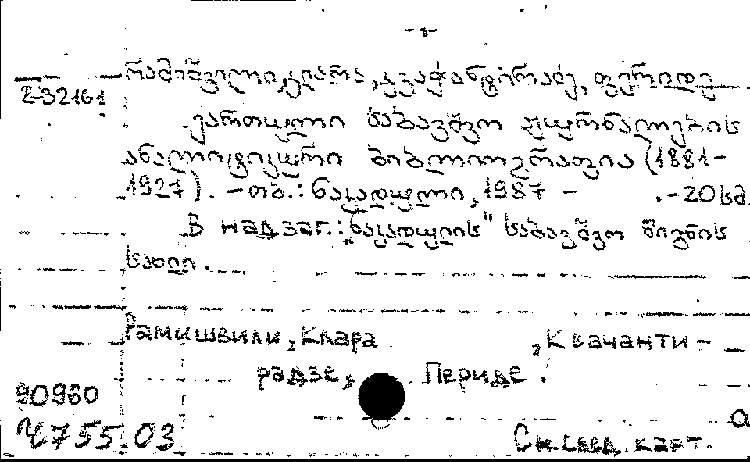 -8-
რამიშვილი, კლარა, კვაჭანტირაძე, ფერიდე
2-32161
ქართული საბავშვო ჟურნალების
ანალიტიკური ბიბლიოგრაფია (1881-
1927). - თბ.: ნაკადული, 1987 - .-20 სმ
В надзаг.: „ნაკადულის" საბავშვო წიგნის
სახლი.
Рамишвили, Клара , Квачанти-
радзе, Периде.
90960
Ч755.03
См. след. карт.